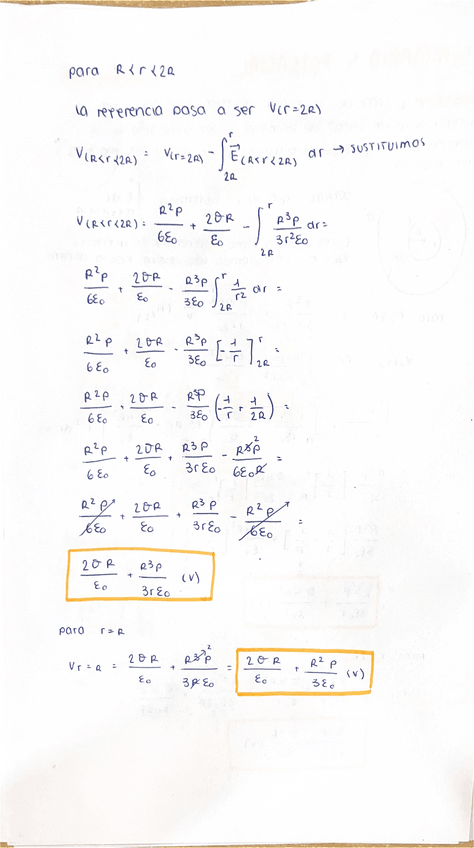 para R<r<2R
la referencia pasa a ser V(r=2R)
V(R<r<2R) = V(r=2R) - ∫_{2R}^{r} E⃗(R<r<2R) dr → SUSTITUIMOS
V(R<r<2R) = R²ρ/6ε₀ + 2σR/ε₀ - ∫_{2R}^{r} R³ρ/3r²ε₀ dr =
R²ρ/6ε₀ + 2σR/ε₀ - R³ρ/3ε₀ ∫_{2R}^{r} 1/r² dr =
R²ρ/6ε₀ + 2σR/ε₀ - R³ρ/3ε₀ [-1/r]_{2R}^{r} =
R²ρ/6ε₀ + 2σR/ε₀ - R³ρ/3ε₀ (-1/r + 1/2R) =
R²ρ/6ε₀ + 2σR/ε₀ + R³ρ/3rε₀ - R³ρ²/6ε₀R =
R²ρ/6ε₀ + 2σR/ε₀ + R³ρ/3rε₀ - R²ρ/6ε₀ =
2σR/ε₀ + R³ρ/3rε₀ (V)
para r=R
Vr=R = 2σR/ε₀ + R³ρ²/3Rε₀ = 2σR/ε₀ + R²ρ/3ε₀ (V)